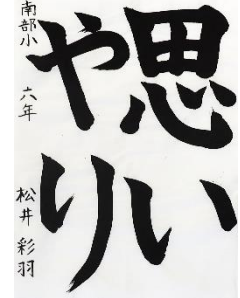 思い
やり
南部小 六年
松井 彩羽